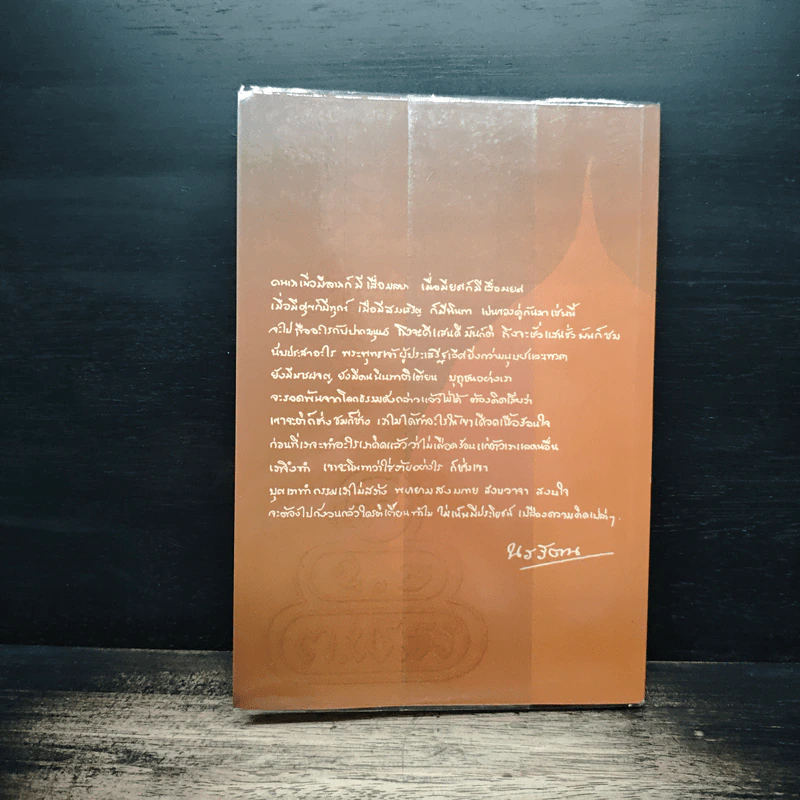 คนเราเมื่อมีลาภก็มีเสื่อมลาภ เมื่อมียศก็มีเสื่อมยศ
เมื่อมีสุขก็มีทุกข์ เมื่อมีสรรเสริญ ก็มีนินทา เป็นของคู่กันมาเช่นนี้
จะไปถืออะไรกับปากมนุษย์ ถึงจะดีแสนดีมันก็ติ ถึงจะชั่วแสนชั่วมันก็ชม
นับประสาอะไร พระพุทธเจ้าผู้ประเสริฐเลิศยิ่งกว่ามนุษย์และเทวดา
ยังมีมารผจญ ยังมีคนนินทาติเตียน ปุถุชนอย่างเรา
จะรอดพ้นจากโลกธรรมดังกล่าวแล้วไม่ได้ ต้องคิดเสียว่า
เขาจะติก็ช่าง ชมก็ช่าง เราไม่ได้ทำอะไรให้เขาเดือดเนื้อร้อนใจ
ก่อนที่เราจะทำอะไรเราคิดแล้วว่าไม่เดือดร้อนแก่ตัวเราและคนอื่น
เราจึงทำ เขาจะนินทาว่าใส่ร้ายอย่างไร ก็ช่างเขา
บุญเราทำ กรรมเราไม่สร้าง พยายามสงบกาย สงบวาจา สงบใจ
จะต้องไปกังวลกลัวใครติเตียนทำไม ไม่เห็นมีประโยชน์ เปลืองความคิดเปล่าๆ.
นรรัตน